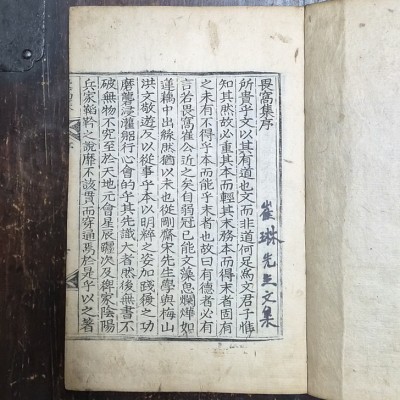 畏窩集序
崔琳先生文集
所貴乎文以其有道也文而非道何足爲文君子惟
知其然故必重其本而輕其末務本而得末者固有
之未有不得乎本而能乎末者也故曰有德者必有
言若畏窩崔公近之矣自弱冠已能文藻思爛燁如
蓮藕中出絲然猶以未也從剛齋宋先生學與梅山
洪文敬遊反以從事乎本以明辯之姿加踐履之功
磨礱浸灌躬行心會的乎其先識大者然後無書不
破無物不究至於天地元會星辰躔次及稗家陰陽
兵家韜鈐之說靡不該貫而穿通焉於是乎以之著